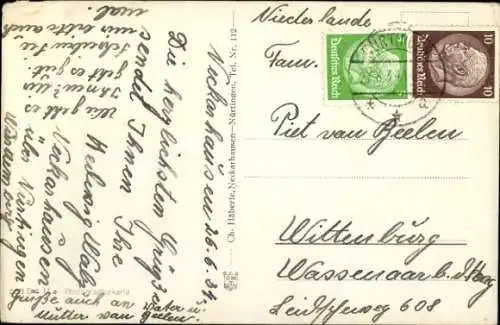 Neckarhausen 26.6.34
Die herzlichsten Grüße
sendet Ihnen Ihre
Hedwig Walz
Neckarhausen
über Nürtingen
Wie geht es
Ihnen? Uns
geht es gut.
Schreiben Sie
nur bitte auch
mal.
Grüße auch an Vater u.
Mutter van Beelen.
Ch. Häberle, Neckarhausen-Nürtingen, Tel. Nr. 112
Niederlande
Fam.
Piet van Beelen
Wittenburg
Wassenaar b. d. Haag
Leidscheweg 608
Deutsches Reich
Deutsches Reich
10
10